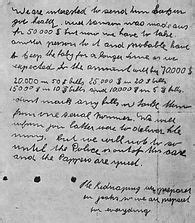 We are interested to send him back in
gut health. ouer ransom was made aus
for 50000 $ but now we have to take
another person to it and probable have
to keep the baby for a longer time as we
expected So the amount will by 70000 $
20.000 in 50 $ bills 25.000 $ in 20 $ bills
15000 $ in 10 $ bills and 10000 in 5 $ bills
dont mark any bills or tack them
from one serial nomer. We will
inform you latter were to deliver the
mony. but we will not do so
until the Police is out of the cace
and the Pappers are quiet.
The kidnaping was prepared
for yeahs, so we are prepared
for everyding